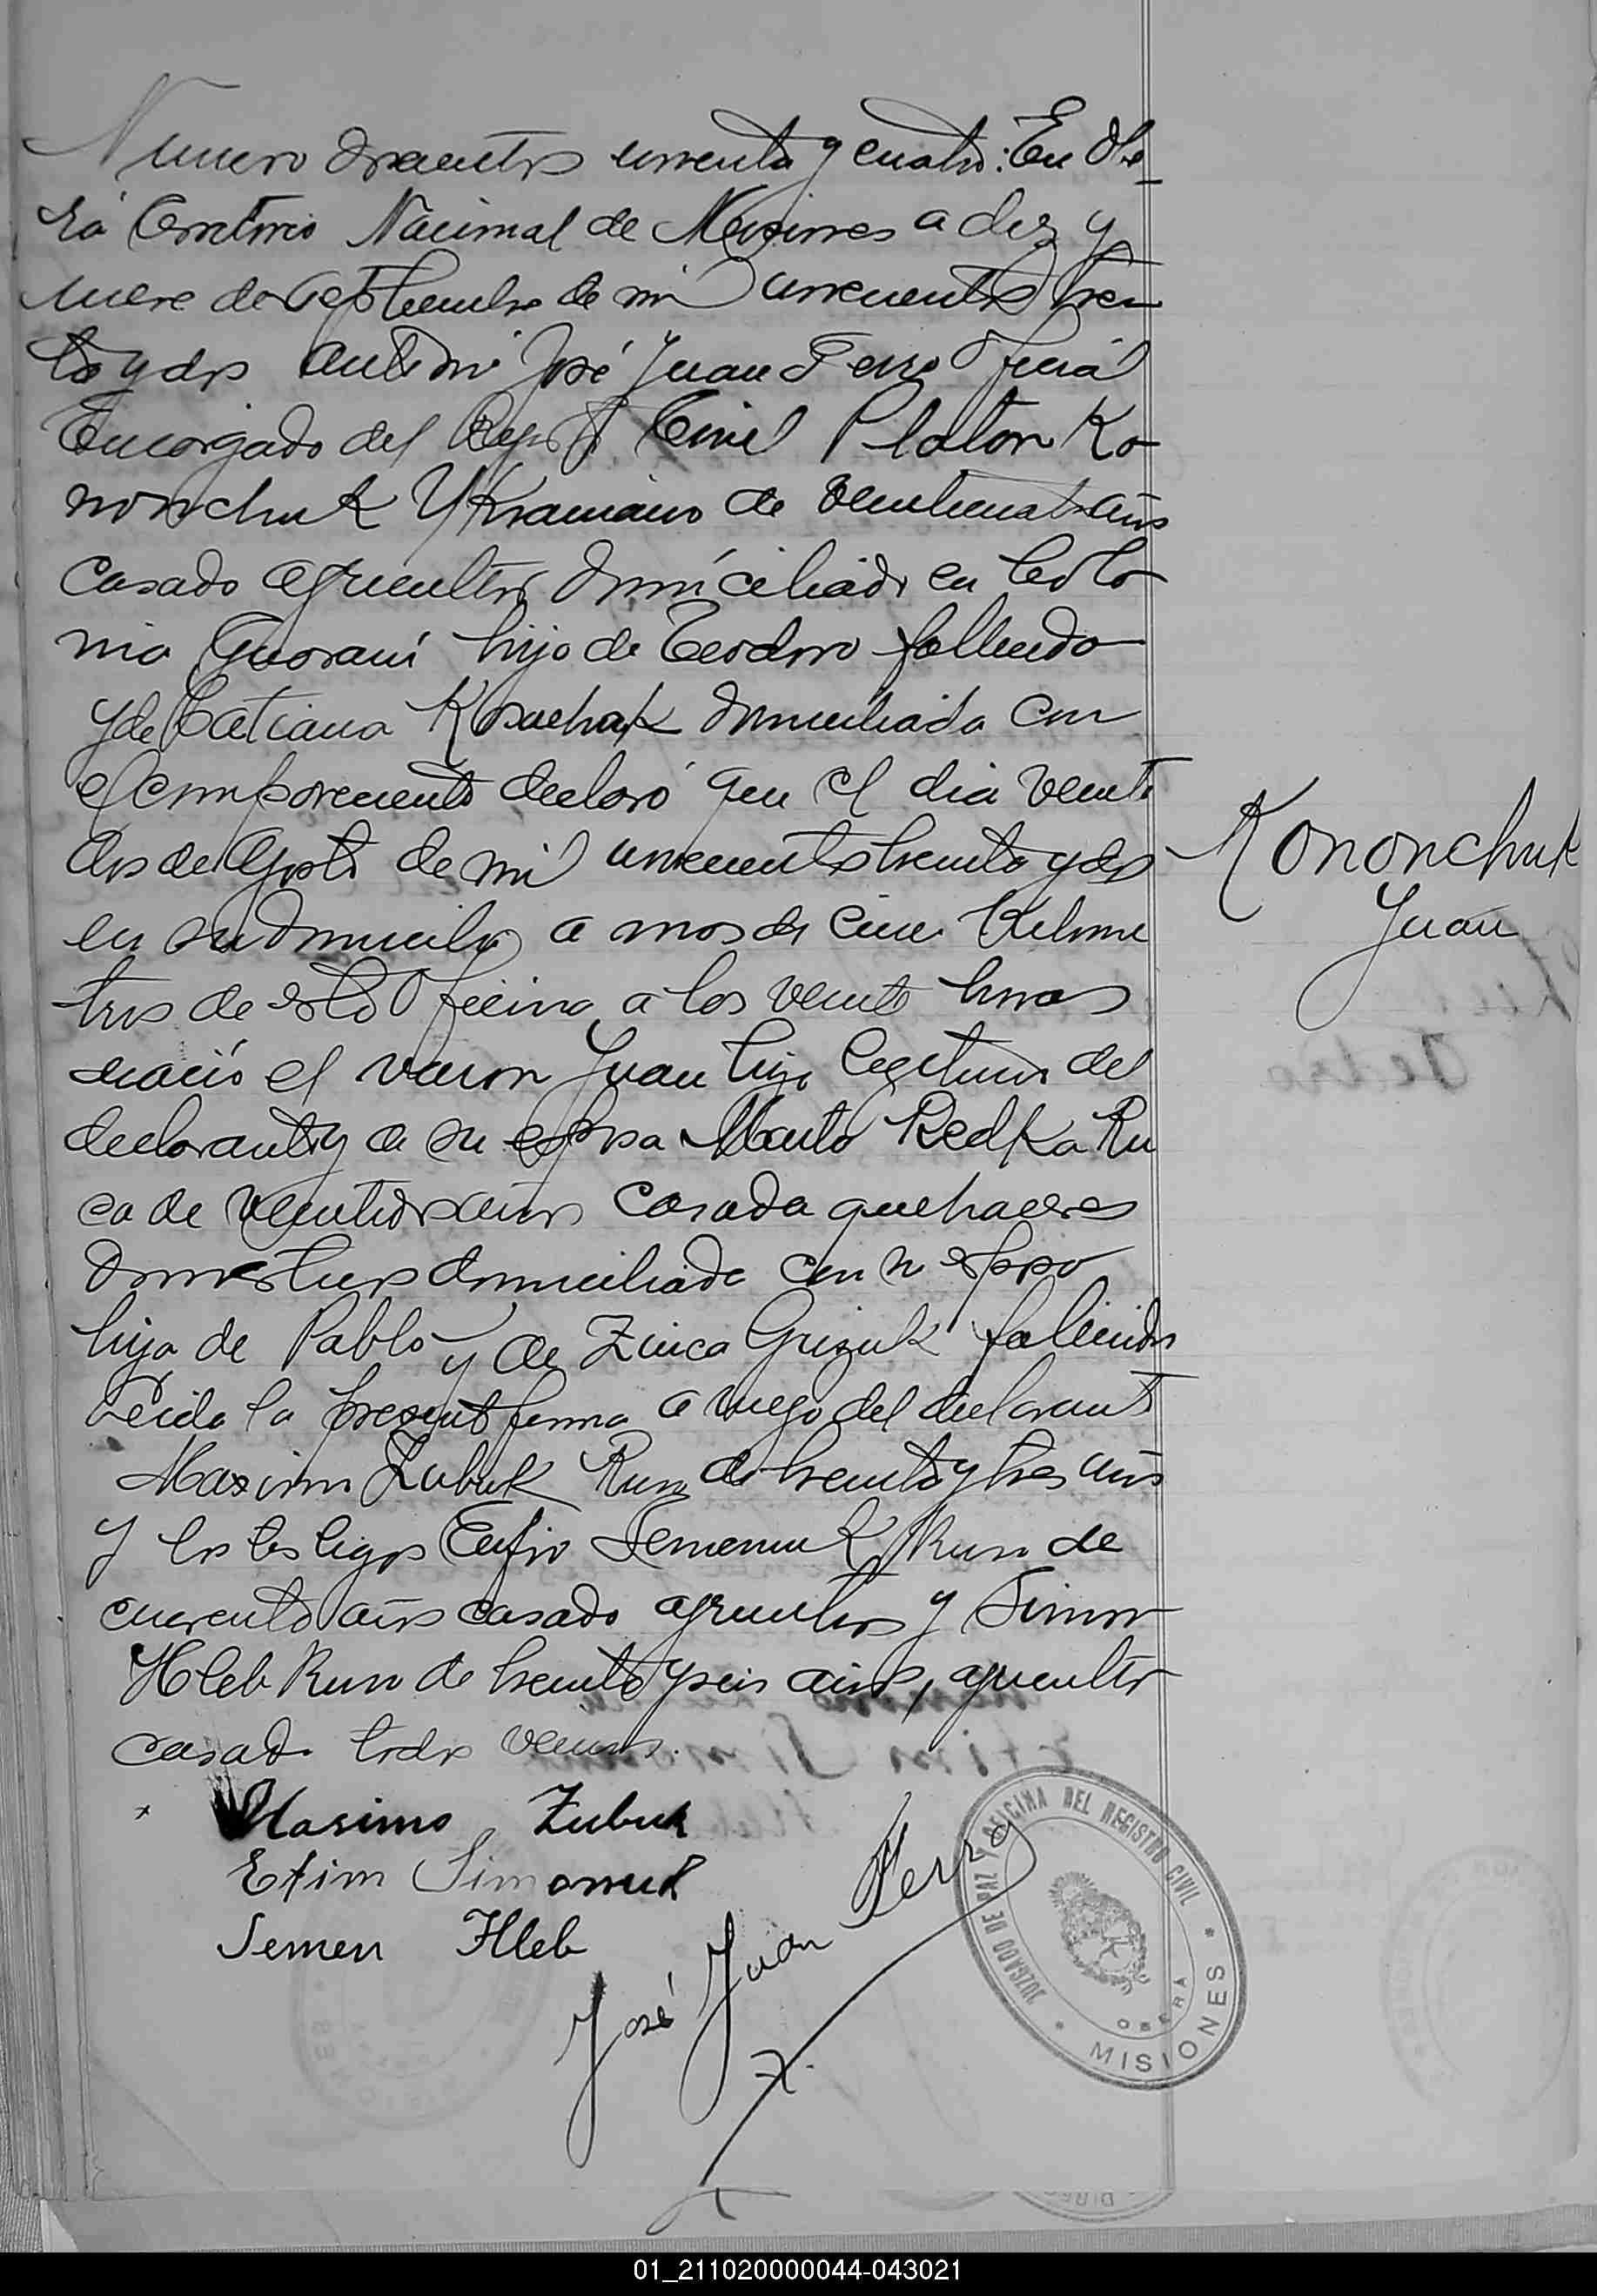 Numero doscientos noventa y cuatro: En Obe-
rá Territorio Nacional de Misiones a diez y
nueve de Septiembre de mil novecientos trein
ta y dos ante mi José Juan Ferro Oficial
Encargado del Registro Civil Platon Ko
nonchuk Ykraniano de años
casado agricultor domiciliado en Colo
nia Guarani hijo de Teodoro fallecido
y de Tatiana domiciliada con
el compareciente declaró que el dia veinti
dos de Agosto de mil novecientos treinta y dos
en su domicilio a mas de cinco kilome
tros de esta Oficina a las veinte horas
nació el varon Juan hijo legitimo del
declarante y de su esposa Marta Redka Ru
sa de veintidos años casada quehaceres
domesticos domiciliada con su esposo
hija de Pablo y de Zinca Grizuk fallecidos
Leida la presente firma a ruego del declarante
Maximo Zubuk Ruso de treinta y tres años
y los testigos Semeniuk Ruso de
cuarenta años casado agricultor y Simon
Hleb Ruso de treinta y seis años, agricultor
casado todos vecinos.
Masimo Zubuk
Efim Simoniuk
Semen Hleb
José Juan Ferro
Kononchuk
Juan
JUZGADO DE PAZ Y OFICINA DEL REGISTRO CIVIL
OBERA
* MISIONES *
01_211020000044-043021